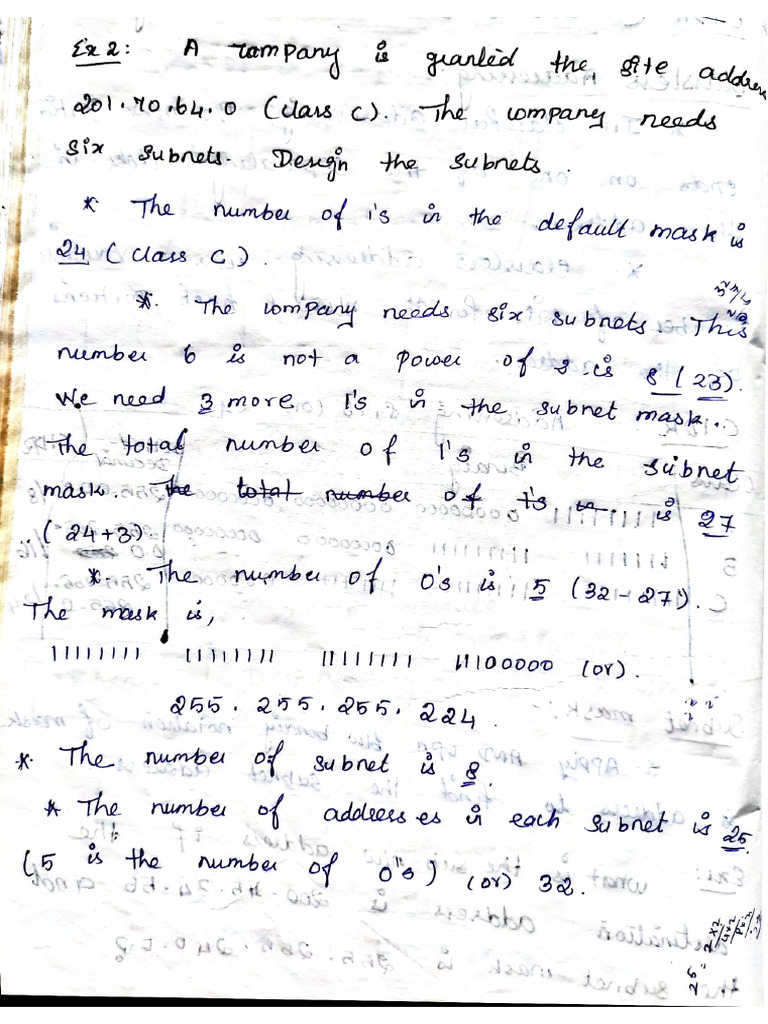 Ex 2: A company is granted the site address
201.70.64.0 (class C). The company needs
six subnets. Design the subnets.
* The number of 1's in the default mask is
24 (class C).
* The company needs six subnets. This
number 6 is not a power of 2. is 8 (23).
We need 3 more 1's in the subnet mask.
The total number of 1's in the subnet
mask. The total number of 1's is 27
(24+3)
* The number of 0's is 5 (32-27).
The mask is,
11111111 11111111 11111111 11100000 (or).
255.255.255.224.
* The number of subnet is 8.
* The number of addresses in each subnet is 25.
(5 is the number of 0"s) (or) 32.